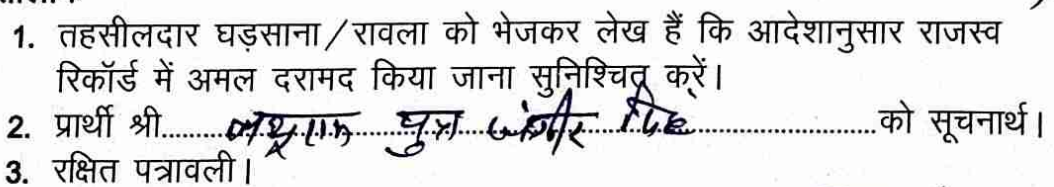 1. तहसीलदार घड़साना/रावला को भेजकर लेख हैं कि आदेशानुसार राजस्व
रिकॉर्ड में अमल दरामद किया जाना सुनिश्चित करें।
2. प्रार्थी श्री.......... पुत्र ..........को सूचनार्थ।
3. रक्षित पत्रावली।